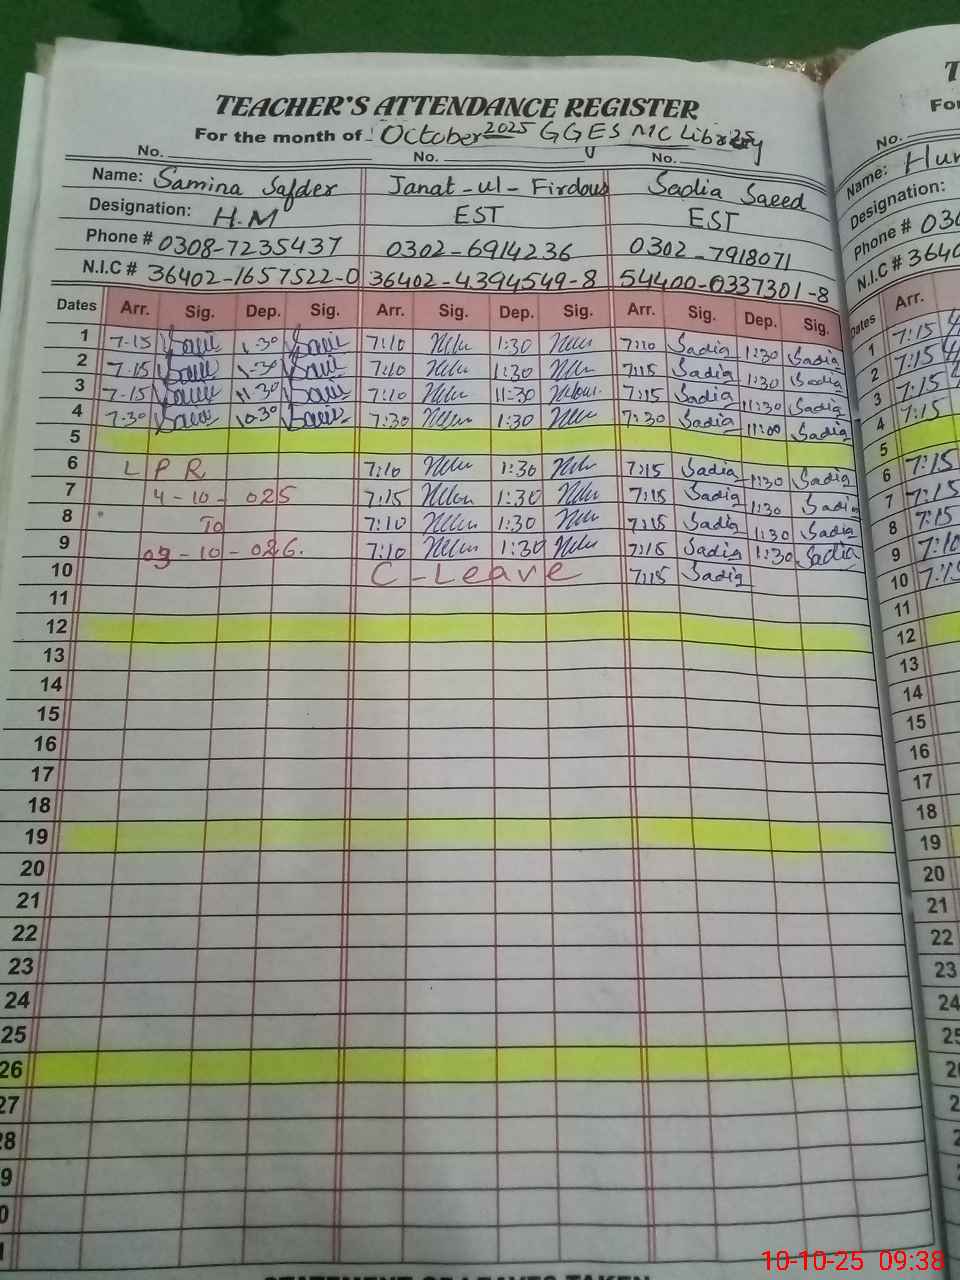 TEACHER'S ATTENDANCE REGISTER
For the month of October 2025 GGES MC Library
No. No. No.
Name: Samina Safder Janat-ul-Firdous Sadia Saeed
Designation: H.M EST EST
Phone # 0308-7235437 0302-6914236 0302-7918071
N.I.C # 36402-1657522-0 36402-4394549-8 54400-0337301-8
Dates Arr. Sig. Dep. Sig. Arr. Sig. Dep. Sig. Arr. Sig. Dep. Sig.
1 7-15 1-30 7:10 1:30 7:10 Sadia 1:30 Sadia
2 7-15 1-30 7:10 1:30 7:15 Sadia 1:30 Sadia
3 7-15 11-30 7:10 11:30 7:15 Sadia 11:30 Sadia
4 7-30 10-30 7:30 1:30 7:30 Sadia 11:00 Sadia
5
6 L P R 7:10 1:30 7:15 Sadia 1:30 Sadia
7 4-10-025 7:15 1:30 7:15 Sadia 1:30 Sadia
8 To 7:10 1:30 7:15 Sadia 1:30 Sadia
9 03-10-026. 7:10 1:30 7:15 Sadia 1:30 Sadia
10 C-Leave 7:15 Sadia
11
12
13
14
15
16
17
18
19
20
21
22
23
24
25
26
27
28
9
0
1
T
For
No.
Name: Hum
Designation:
Phone # 030
N.I.C # 3640
Dates Arr.
1 7:15
2 7:15
3 7:15
4 7:15
5
6 7:15
7 7:15
8 7:15
9 7:10
10 7:15
11
12
13
14
15
16
17
18
19
20
21
22
23
24
25
2
2
2
10-10-25 09:38